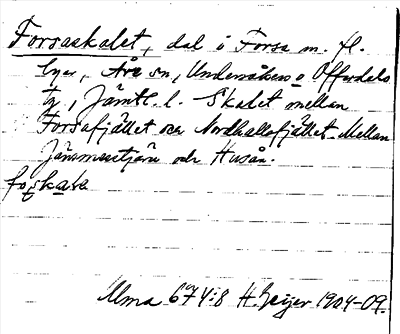 Forsaskalet, dal i Forsa m. fl.
byar, Åre sn, Undersåkers o Offerdals
tg, Jämtl. l. Skalet mellan
Forsafjället och Nordhallsfjället. Mellan
och Huså.
Ulma 674:8 H. Geijer 1904-09.